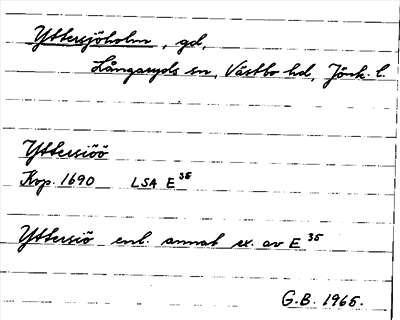 Yttersjöholm, gd,
Långaryds sn, Västbo hd, Jönk. l.
Yttersiöö
Kop. 1690 LSA E³⁵
Yttersiö enl. annat ex. av E³⁵
G.B. 1965.